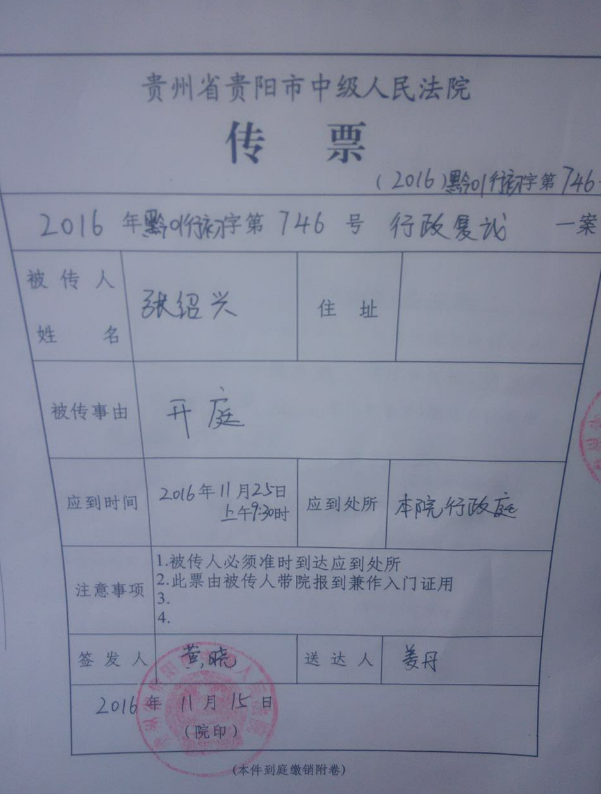 贵州省贵阳市中级人民法院
传 票
(2016)黔01行初字第746
2016年黔01行初字第746号 行政复议 一案
被传人姓名 张绍兴 住址
被传事由 开庭
应到时间 2016年11月25日上午9:30时 应到处所 本院行政庭
注意事项
1.被传人必须准时到达应到处所
2.此票由被传人带院报到兼作入门证用
3.
4.
签发人 黄晓 送达人 姜丹
2016年11月15日
(院印)
(本件到庭缴销附卷)